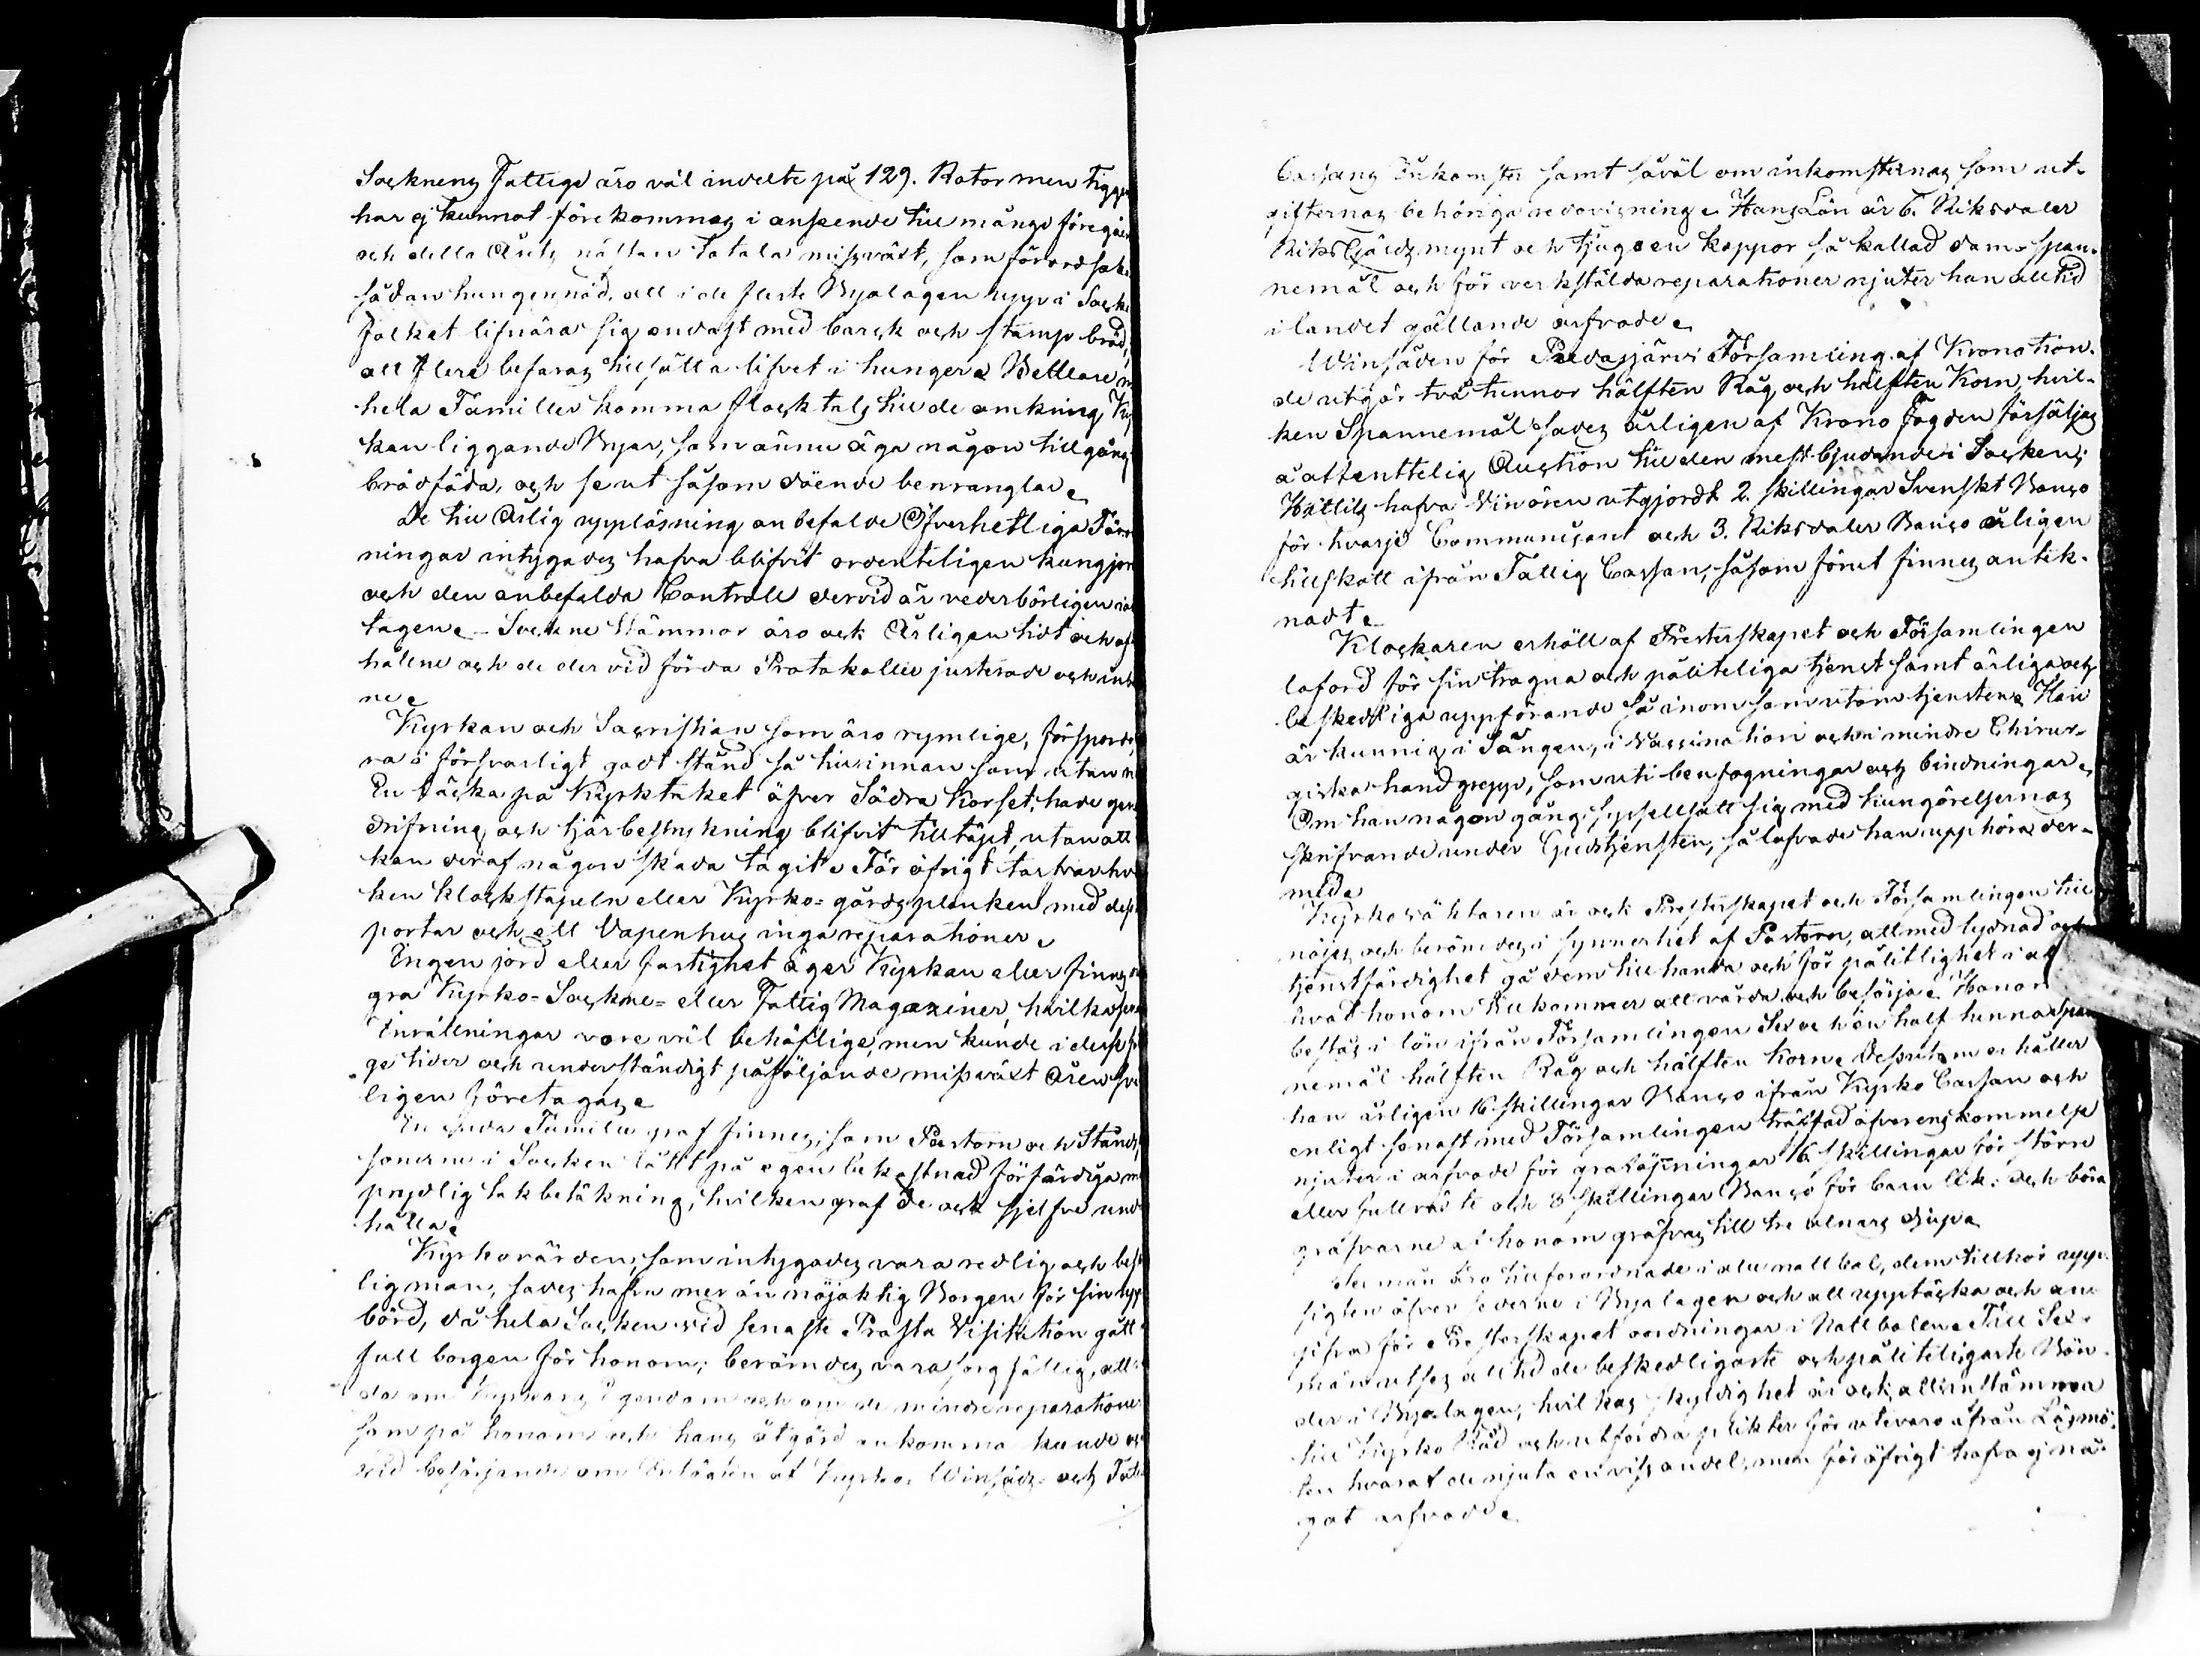 Sockneng Fattige äro väl indelte på 129. Rotor men tigge
har ej kunnat förekommas i anseende till många föregåen
och detta Åuts nästan totala missväxt, som förorsaka
sådan hungersnöd, att i de fleste Byalagen uppi Socke
folket lifnära sig endast med barck och stamp bröd,
att flere befaras tillsätta lifvet i hunger. Bettlare
hela Familler komma flocktals till de omkring Kyr
kan liggande Byar, som ännu äga någon tillgång
brödföda, och se ut såsom döende benranglar.
De till Årlig uppläsning anbefalde Öfverhetliga För
ningar intygades hafva blifvit ordenteligen kungjor
och den anbefalda Controll dervid är vederbörligen iak
tagen. Sockne Stämmor äro ock Årligen tidt och of
hållne och de der vid förda Protokoller justerade och
ne.
Kyrkan och Sacristian som äro rymlige, försports
ra i försvarligt godt stånd så till innan som utan
En läcka på Kyrktaket öfver Södra Korset, hade gen
drifning och tjärbestrykning blifvit tilltäpt, utan att
kan deraf någon skada tagit. För öfrigt tarfvar hv
ken klockstapeln eller Kyrko-gårds planken med dess
portar och ett Vapenhus inga reparationer.
Engen jord eller fastighet äger Kyrkan eller finnas
gra Kyrko- Sockne- eller Fattig Magaziner, hvilka
Inrättningar vore väl behöflige, men kunde i dess
ge tider och understundigt påföljande missväxt Åren
ligen företagas.
En enda Familie graf finnes, som Pastorn och Stånds
sonerne i Socken låtit på egen bekostnad förfärdiga
prydlig takbetäkning, hvilken graf de ock sjelfve und
hålla.
Kyrkovärden, som intygades vara redlig och besk
lig man, sades hafva mer än nöjaktig Borgen för sin upp
börd, då hela Socken vid senaste Prosta Visitation gått
full borgen för honom; berömdes vara sorgfällig, att
da om Kyrkans egendom och om de mindre reparationer
som på honom och hans åtgörd ankomma kunde
vid besörjande om Intägten af Kyrko- Winsäds- och Fatt
Cassans Inkomster samt såväl om inkomsternas som ut-
gifternas behöriga redovisning. Hans Lön är 6. Riksdaler
Riksgälds mynt och tjugo en kappor så kallad dam-span-
nemål och för verkstälda reparationer njuter han alltid
i landet gällande arfvode.
Winsäden för Pudasjärvi Församling af Kronotion-
de utgör två tunnor hälften Råg och hälften Korn, hvil-
ken Spannemål sades årligen af Krono Fogden försäljas
å offenttelig Auction till den mestbjudande i Socken;
Hittils hafva Vinören utgjordt 2. skillingar Svenskt Banco
för hvarje Communicant och 3. Riksdaler Banco årligen
tillskott ifrån Fattig Cassan, såsom förut finnes antek-
nadt.
Klockaren erhöll af Presterskapet och Församlingen
loford för sin trogna och påliteliga tjenst samt ärliga och
beskedliga uppförande så inom som utom tjensten. Han
är kunnig i Sången, i Vaccination och i mindre Chirur-
giska handgrepp, som uti benfogningar och bindningar.
Om han någon gång sysselsatt sig med kungörelsernas
skrifvande under Gudstjensten, så lofvade han upphöra der-
med.
Kyrkovächtaren är ock Presterskapet och Församlingen till
nöjes, och berömdes i synnerhet af Pastorn, att med lydnad och
tjenstfärdighet gå dem till handa och för pålitlighet i alt
hvad honom tillkommer att vårda och besörja. Honom
bestås i lön ifrån Församlingen Sex och en half tunna Span
nemål hälften Råg och hälften korn. Dessutom erhåller
han årligen 16 skillingar Banco ifrån Kyrko Cassan och
enligt senast med Församlingen träffad öfverenskommelse
njuter i arfvode för graföpningar 16 skillingar för större
eller fullväxte och 8 skillingar Banco för barn lik: och böra
grafvarne af honom gräfvas till tre alnars djup.
Sex män äro till förordnade i alla nattbol, dem tillhör upp-
sigten öfver sederne i Byalagen och att upptäcka och an-
gifva för Presterskapet oordningar i Nattbolen. Till Sex-
män utses alltid de beskedligaste och påliteligaste Bön-
der i Byalagen, hvilkas skyldighet är ock att instämma
till Kyrko Råd och utfordra plikter för utevaro ifrån Läsmö-
ten hvaraf de njuta en viss andel, men för öfrigt hafva ej nå-
got arfvode.